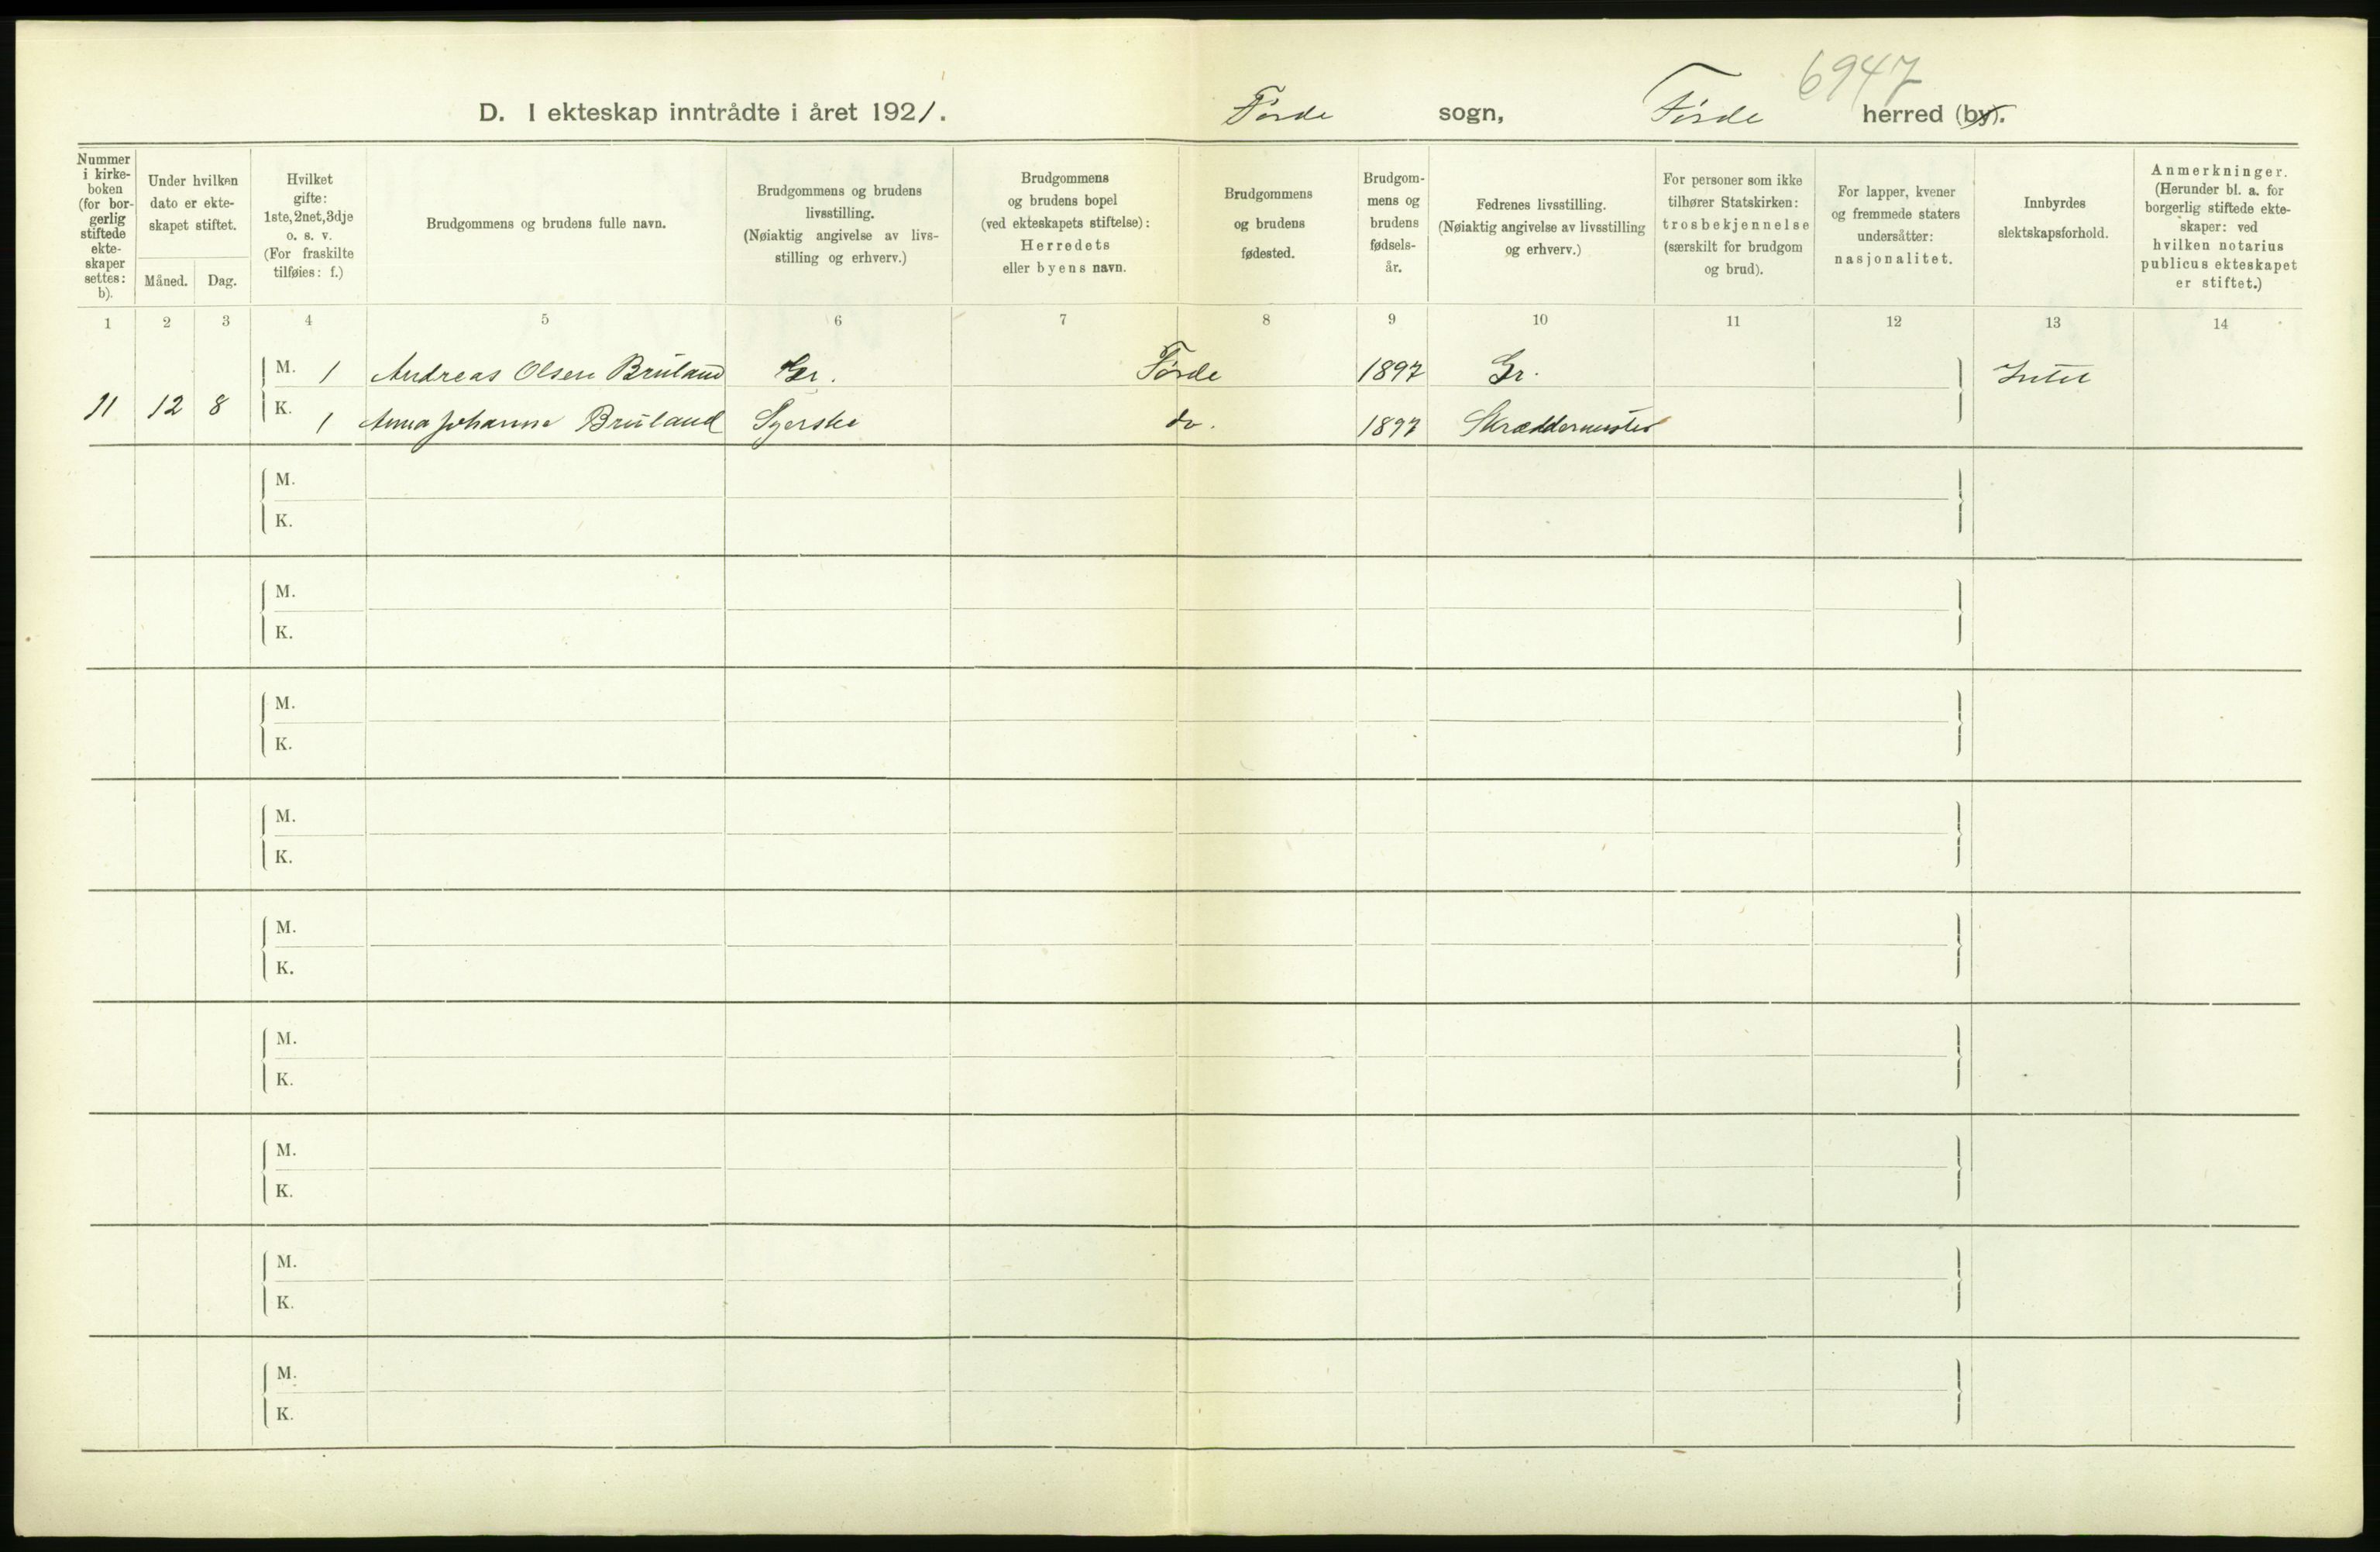 6947
D. I ekteskap inntrådte i året 1921. Førde sogn, Førde herred (by).
Nummer i kirke-boken (for bor-gerlig stiftede ekte-skaper settes: b).
Under hvilken dato er ekte-skapet stiftet.
Måned. Dag.
Hvilket gifte: 1ste, 2net, 3dje o. s. v. (For fraskilte tilføies: f.)
Brudgommens og brudens fulle navn.
Brudgommens og brudens livsstilling. (Nøiaktig angivelse av livs-stilling og erhverv.)
Brudgommens og brudens bopel (ved ekteskapets stiftelse): Herredets eller byens navn.
Brudgommens og brudens fødested.
Brudgom-mens og brudens fødsels-år.
Fedrenes livsstilling. (Nøiaktig angivelse av livsstilling og erhverv.)
For personer som ikke tilhører Statskirken: trosbekjennelse (særskilt for brudgom og brud).
For lapper, kvener og fremmede staters undersåtter: nasjonalitet.
Innbyrdes slektskapsforhold.
Anmerkninger. (Herunder bl. a. for borgerlig stiftede ekte-skaper: ved hvilken notarius publicus ekteskapet er stiftet.)
1 2 3 4 5 6 7 8 9 10 11 12 13 14
M. 1 Andreas Olsen Bruland Gr. Førde 1897 Gr. Intet
11 12 8
K. 1 Anna Johanne Bruland Syerske do. 1897 Skræddermester
M.
K.
M.
K.
M.
K.
M.
K.
M.
K.
M.
K.
M.
K.
M.
K.
M.
K.